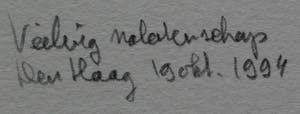 Veiling nalatenschap
Den Haag 19 okt. 1994